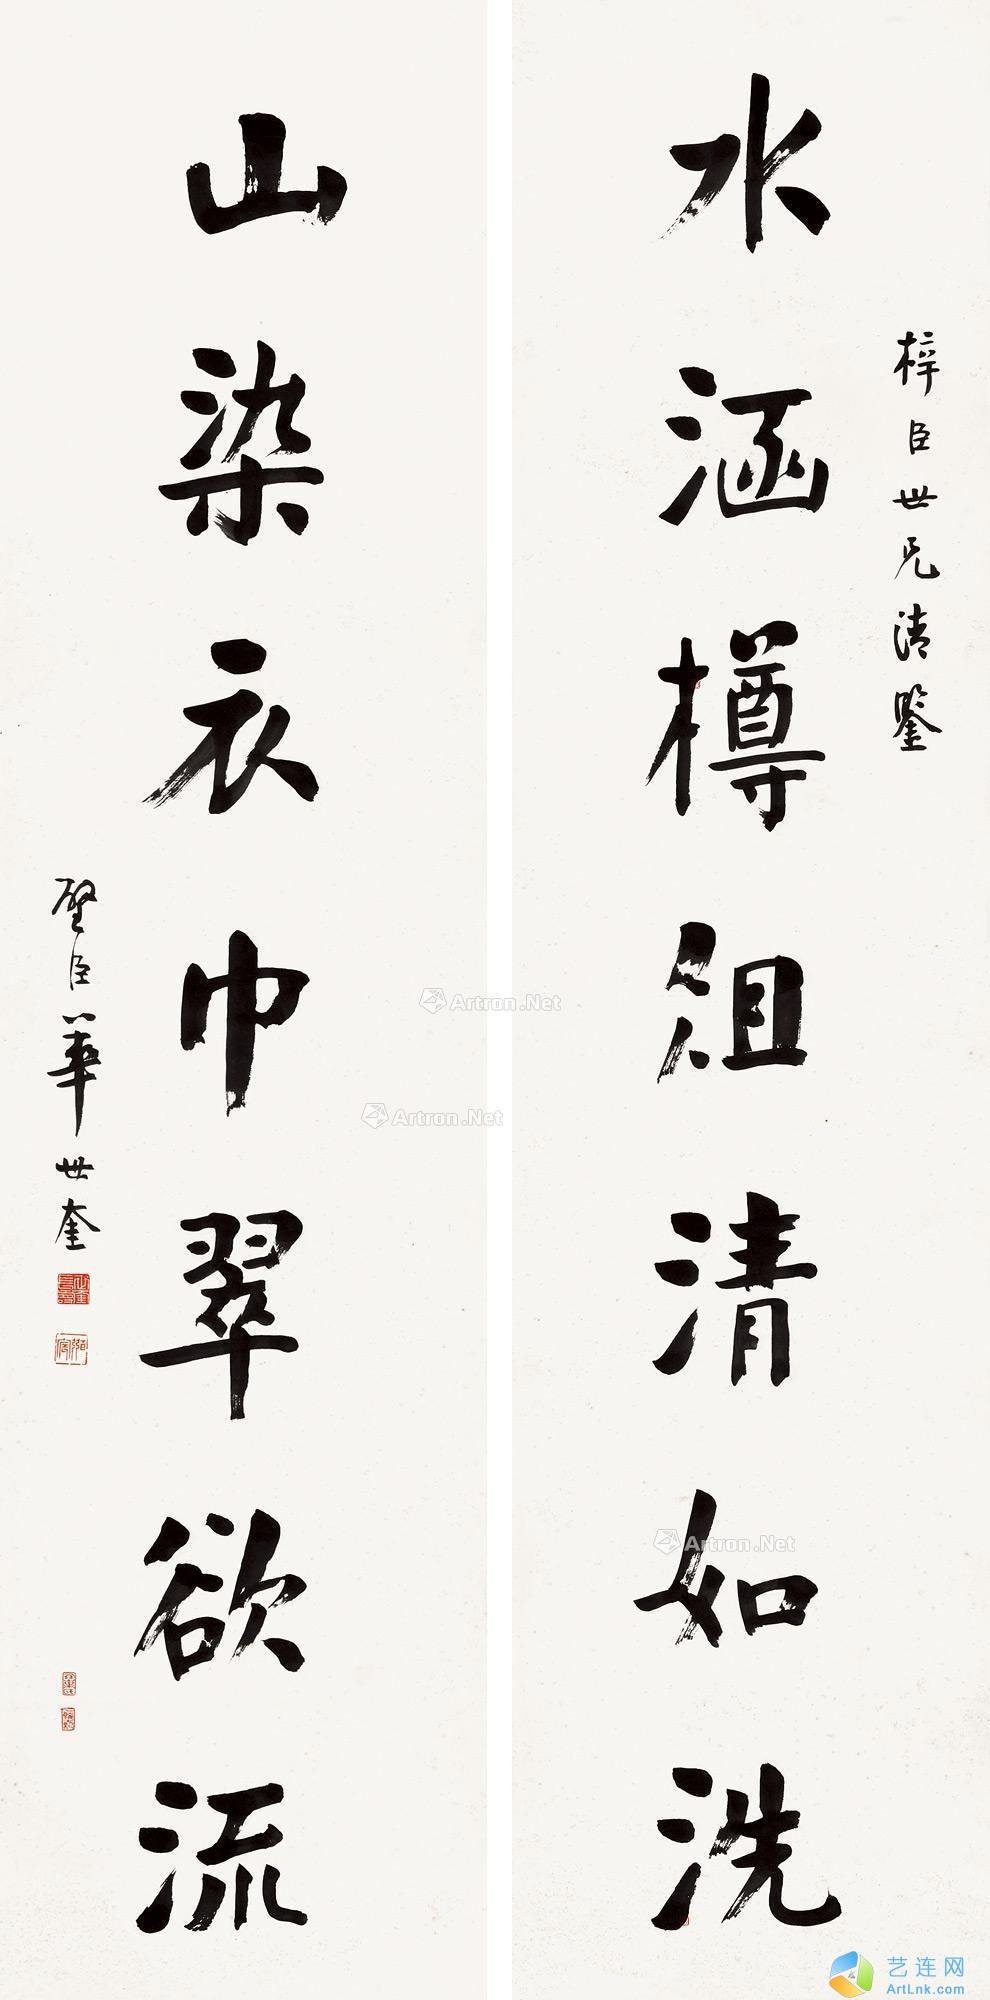 梓臣世兄清鑒
水涵樽俎清如洗
山染衣巾翠欲流
璧臣華世奎
Artron.Net
Artron.Net
Artron.Net
艺连网
ArtLnk.com